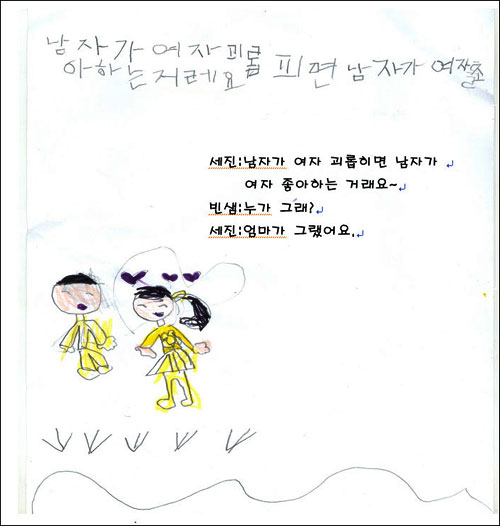 남자가 여자 괴롭피면 남자가 여자
아하는지레요
세진:남자가 여자 괴롭히면 남자가
여자 좋아하는 거래요~
빈샘:누가 그래?
세진:엄마가 그랬어요.